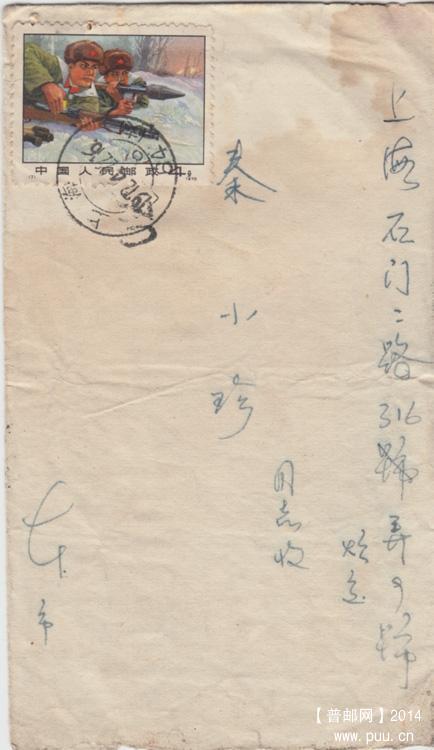 上海石门二路316號弄9號
秦小珍
同志收
本市
中国人民邮政
上海
【普邮网】2014
www.puu.cn